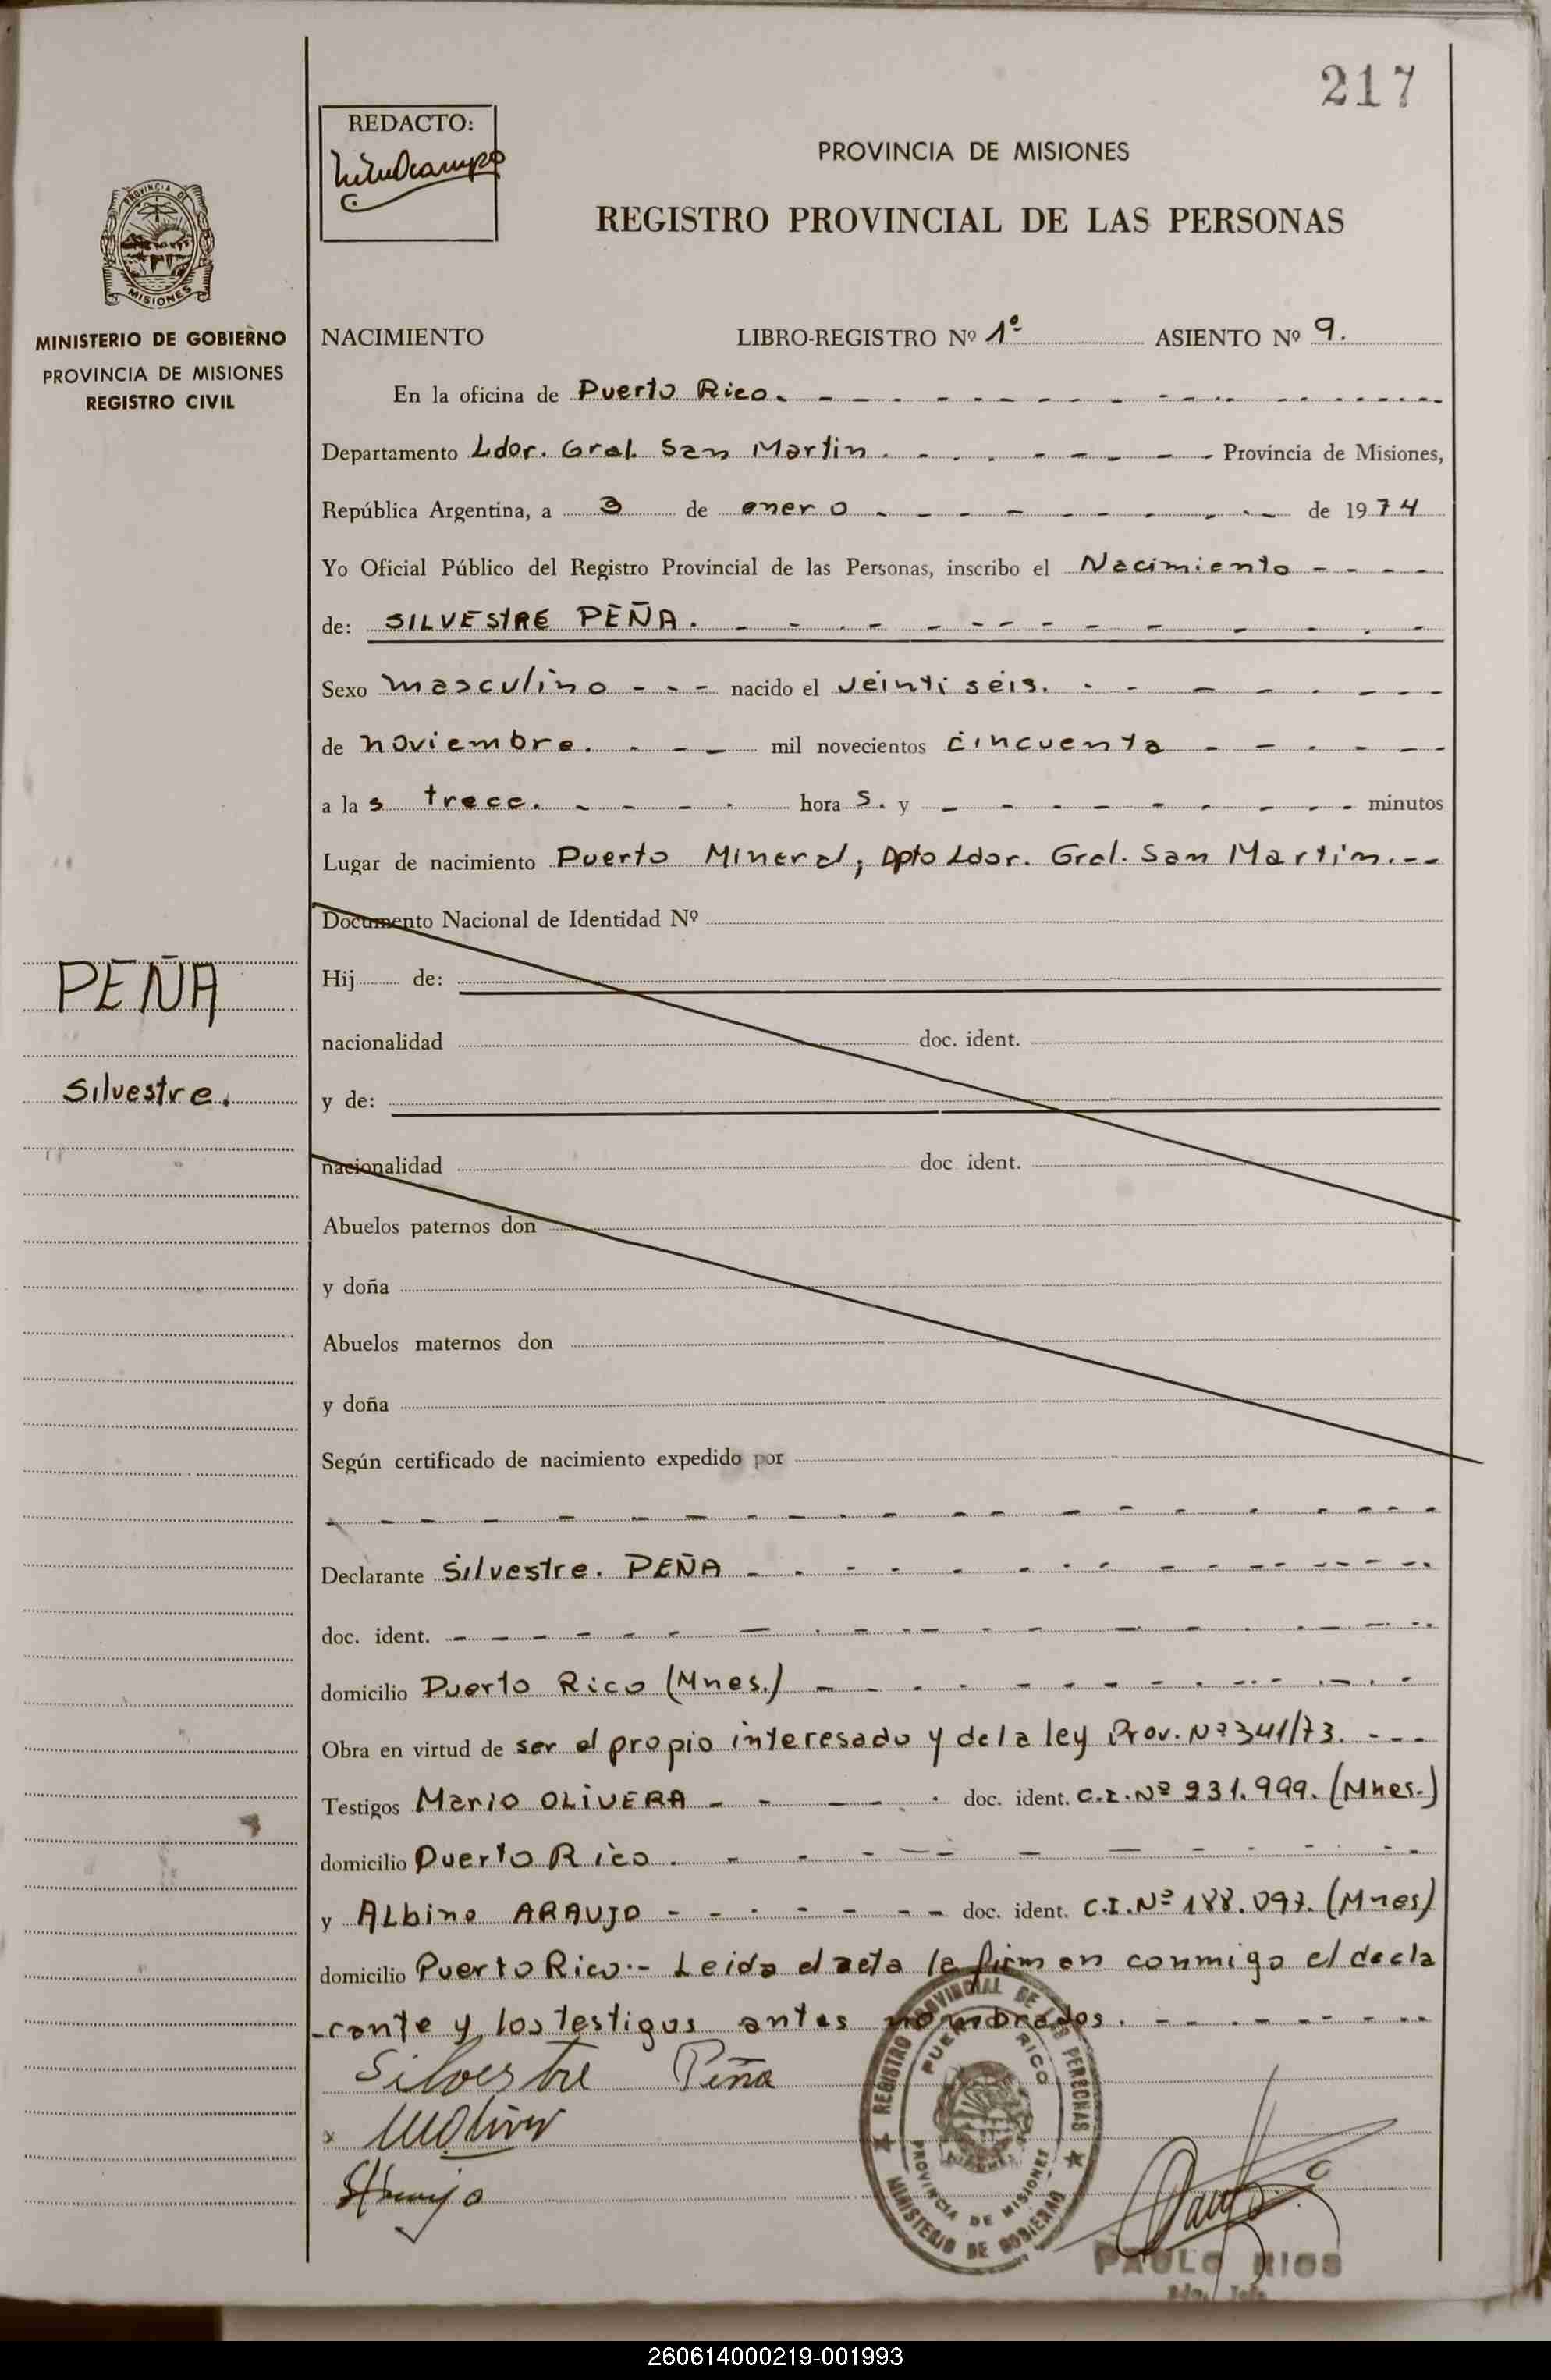 217
REDACTO:
PROVINCIA DE MISIONES
REGISTRO PROVINCIAL DE LAS PERSONAS
PROVINCIA DE
MISIONES
MINISTERIO DE GOBIERNO
PROVINCIA DE MISIONES
REGISTRO CIVIL
NACIMIENTO LIBRO-REGISTRO Nº 1º ASIENTO Nº 9.
En la oficina de Puerto Rico.
Departamento Ldor. Gral. San Martin. Provincia de Misiones,
República Argentina, a 3 de enero de 1974
Yo Oficial Público del Registro Provincial de las Personas, inscribo el Nacimiento
de: SILVESTRE PEÑA.
Sexo masculino nacido el veintiseis.
de noviembre. mil novecientos cincuenta
a las trece. horas. y minutos
Lugar de nacimiento Puerto Mineral, Dpto Ldor. Gral. San Martin.
Documento Nacional de Identidad Nº
PEÑA
Hij de:
nacionalidad doc. ident.
Silvestre.
y de:
nacionalidad doc ident.
Abuelos paternos don
y doña
Abuelos maternos don
y doña
Según certificado de nacimiento expedido por
Declarante Silvestre. PEÑA
doc. ident.
domicilio Puerto Rico (Mnes.)
Obra en virtud de ser el propio interesado y de la ley Prov. Nº 341/73.
Testigos Mario OLIVERA doc. ident. C.I. Nº 231.999. (Mnes.)
domicilio Puerto Rico.
y Albino ARAUJO doc. ident. C.I. Nº 188.097. (Mnes)
domicilio Puerto Rico.- Leida el acta la firman conmigo el decla
-rante y los testigos antes nombrados.
Silvestre Peña
REGISTRO PROVINCIAL DE LAS PERSONAS
PUERTO RICO
PROVINCIA DE MISIONES
MINISTERIO DE GOBIERNO
PAULO RIOS
260614000219-001993